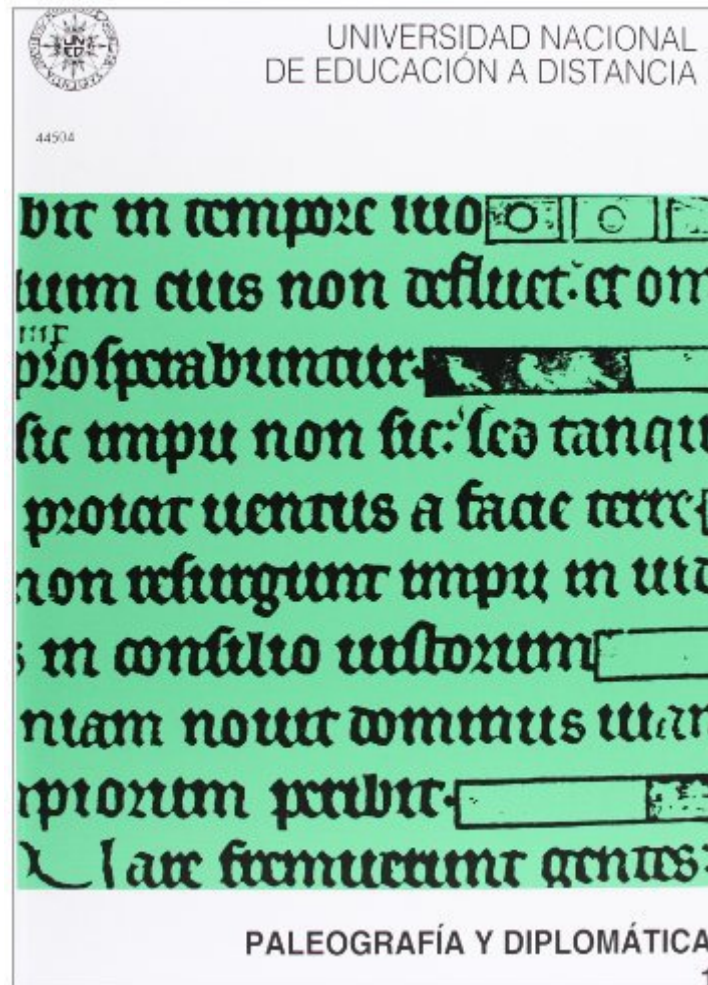 UNIVERSIDAD NACIONAL
DE EDUCACIÓN A DISTANCIA
44504
bit in tempore suo
lium eius non defluet: et om
prosperabuntur.
sic impii non sic: sed tanqu
proicit uentus a facie terre
non resurgunt impii in iud
s in consilio iustorum
niam nouit dominus uiam
mpiorum peribit.
are fremuerunt gentes:
PALEOGRAFÍA Y DIPLOMÁTICA
1